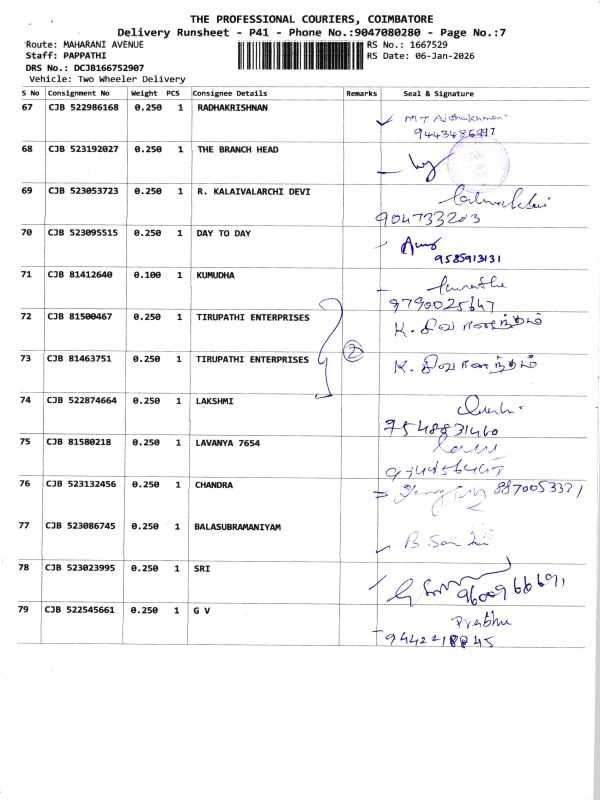 THE PROFESSIONAL COURIERS, COIMBATORE
Delivery Runsheet - P41 - Phone No.:9047080280 - Page No.:7
Route: MAHARANI AVENUE RS No.: 1667529
Staff: PAPPATHI RS Date: 06-Jan-2026
DRS No.: DCJB166752907
Vehicle: Two Wheeler Delivery
S No Consignment No Weight PCS Consignee Details Remarks Seal & Signature
67 CJB 522986168 0.250 1 RADHAKRISHNAN
68 CJB 523192027 0.250 1 THE BRANCH HEAD
69 CJB 523053723 0.250 1 R. KALAIVALARCHI DEVI
904733203
70 CJB 523095515 0.250 1 DAY TO DAY
9585913131
71 CJB 81412640 0.100 1 KUMUDHA
9790025647
72 CJB 81500467 0.250 1 TIRUPATHI ENTERPRISES
2
73 CJB 81463751 0.250 1 TIRUPATHI ENTERPRISES
74 CJB 522874664 0.250 1 LAKSHMI
7548831460
75 CJB 81580218 0.250 1 LAVANYA 7654
76 CJB 523132456 0.250 1 CHANDRA
8870053321
77 CJB 523086745 0.250 1 BALASUBRAMANIYAM
78 CJB 523023995 0.250 1 SRI
9600966691
79 CJB 522545661 0.250 1 G V
Prabhu